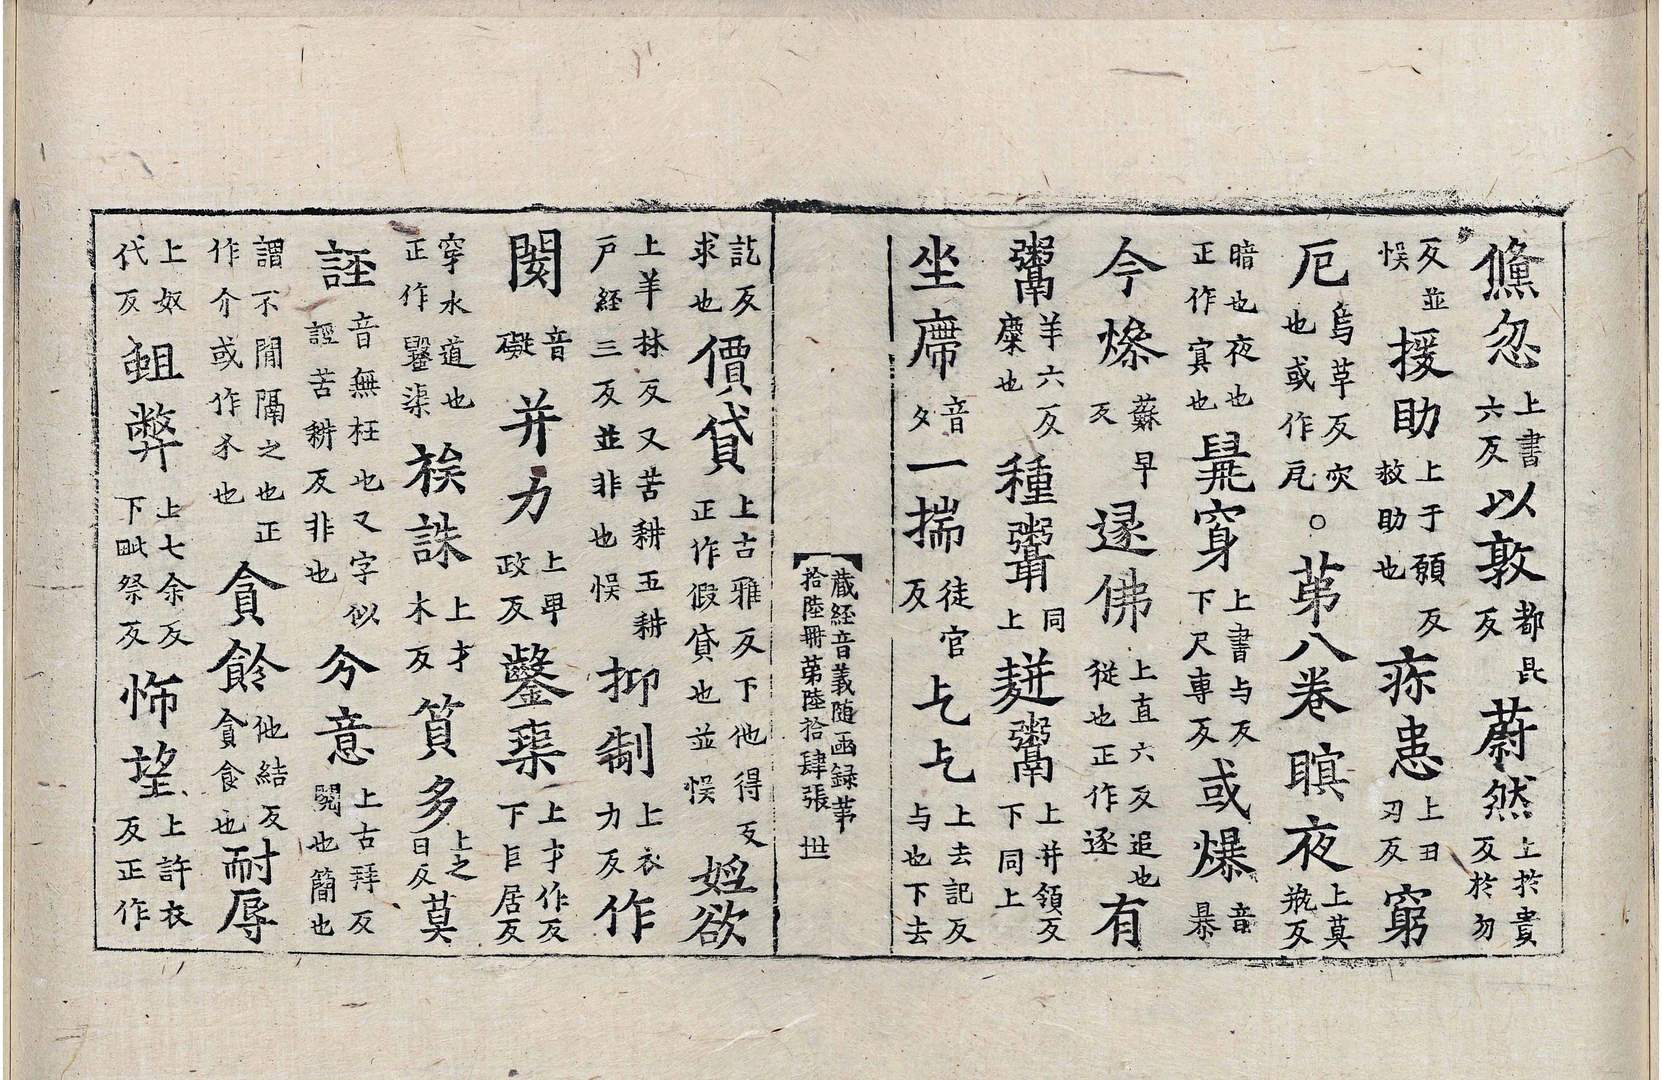 儵忽上書六反以敦都昆反蔚然上於貴反於勿
反並悮援助上于願反救助也疢患上丑刃反窮
厄烏革反灾也或作戹。苐八卷瞑夜上莫瓶反
暗也夜也正作寘也髡穿上書与反下尺専反或爆音暴
今燥蘇早反逐佛上直六反追也從也正作逐有
鬻羊六反麋也種鬻同上麸鬻上并領反下同上
坐席音夕一揣徒官反乞乞上去記反与也下去
藏経音義随函録苐拾陸冊苐陸拾肆張 世
訖反求也價貸上古雅反下他得反正作假貸也並悮婬欲
上羊林反又苦耕五耕戸経三反並非也悮抑制上衣力反作
閡音礙并力上卑政反鑿渠上才作反下巨居反
穿水道也正作鑿渠䅳誅上才木反質多上之日反莫
誙音無枉也又字似誙苦耕反非也分意上古拜反閱也簡也
謂不閒隔之也正作介或作尒也貪飻他結反貪食也耐辱
上奴代反蛆弊上七余反下毗祭反悕望上許衣反正作